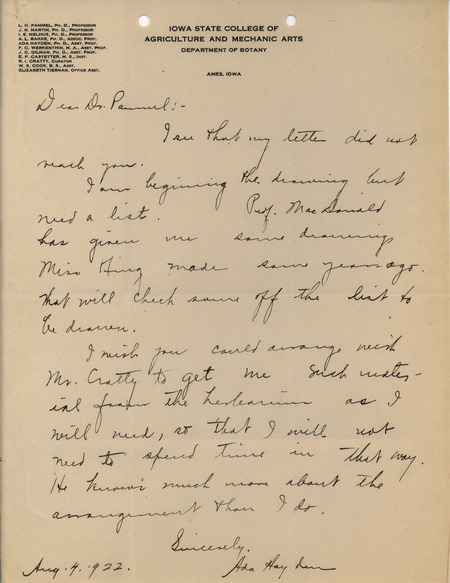 L. H. PAMMEL, PH. D., PROFESSOR
J. N. MARTIN, PH. D., PROFESSOR
I. E. MELHUS, PH. D., PROFESSOR
A. L. BAKKE, PH. D., ASSOC. PROF.
ADA HAYDEN, PH. D., ASST. PROF.
F. C. WERKENTHIN, M. A., ASST. PROF.
J. C. GILMAN, PH. D., ASST. PROF.
E. F. CASTETTER, M. S., INST.
R. I. CRATTY, CURATOR
W. S. COOK, B. S., ASST.
ELIZABETH TIERNAN, OFFICE ASST.
IOWA STATE COLLEGE OF
AGRICULTURE AND MECHANIC ARTS
DEPARTMENT OF BOTANY
AMES, IOWA
Dear Dr. Pammel:-
I see that my letter did not
reach you.
I am beginning the drawing but
need a list. Prof. MacDonald
has given me some drawings
Miss King made some years ago.
That will check some off the list to
be drawn.
I wish you could arrange with
Mr. Cratty to get me such mater-
ial from the herbarium as I
will need, so that I will not
need to spend time in that way.
He knows much more about the
arrangement than I do.
Sincerely,
Aug. 4, 1922. Ada Hayden